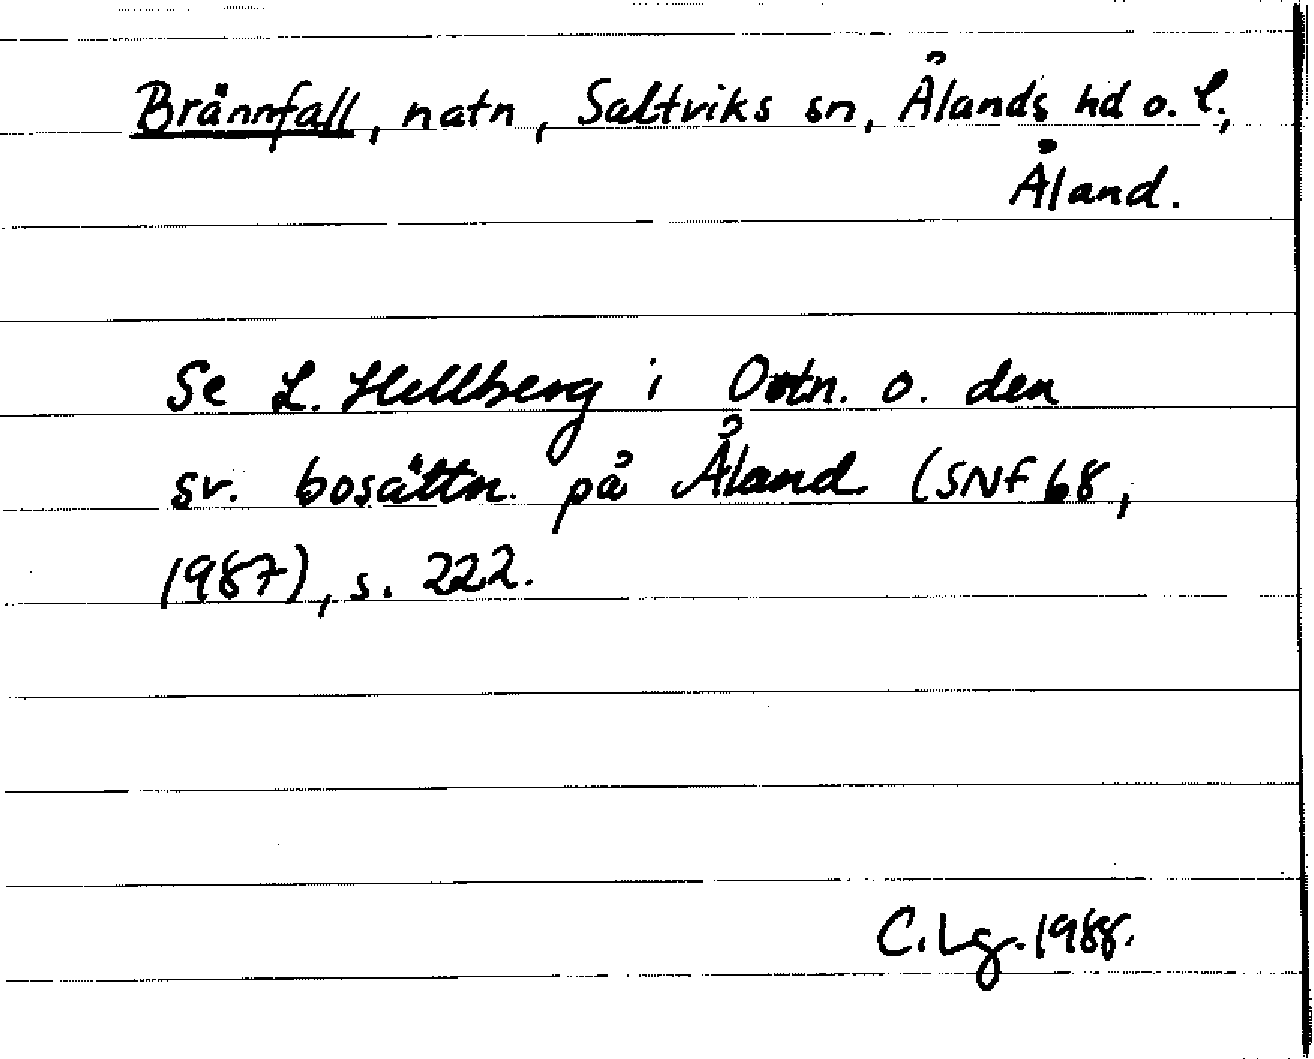 Brännfall, natn, Saltviks sn, Ålands hd o. l.,
Åland.
Se L. Hellberg i Ortn. o. den
sv. bosättn. på Åland (SNF 68,
1987), s. 222.
C. Lg. 1988.